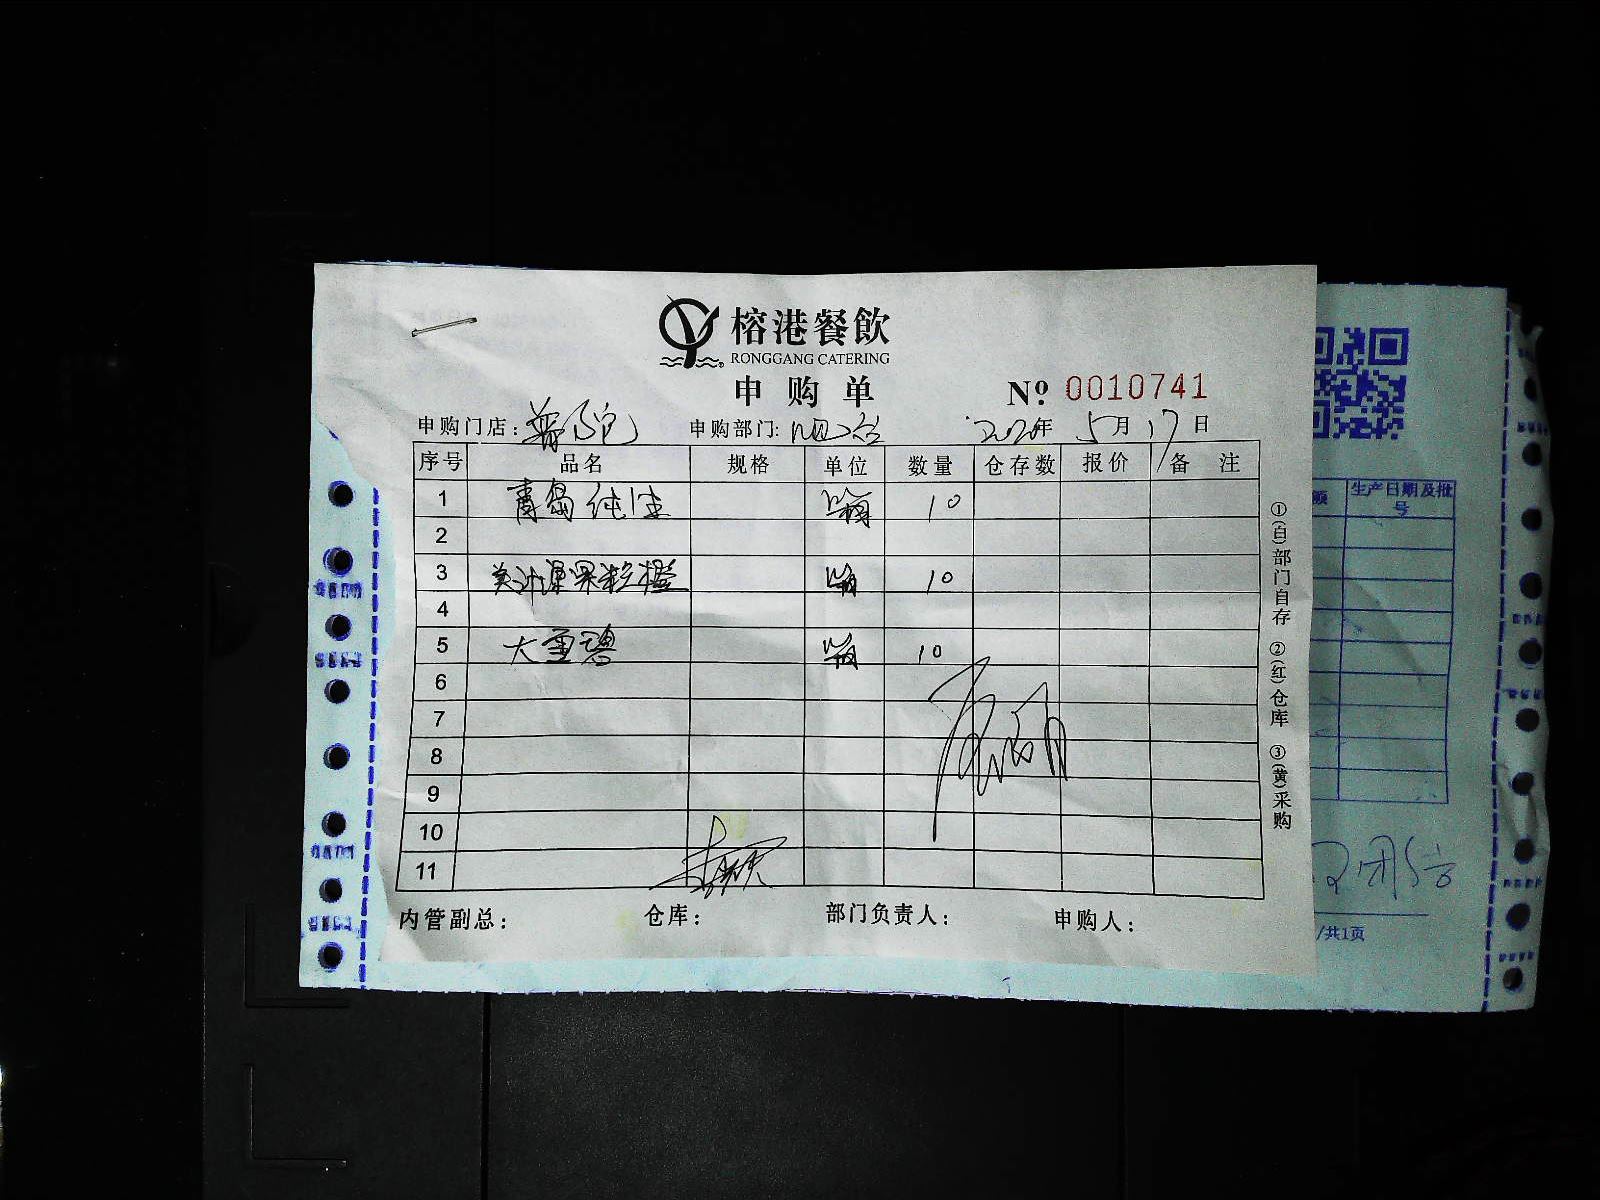 榕港餐飲
RONGGANG CATERING
申购单 Nº 0010741
申购门店: 申购部门: 吧台 2020年 5月 17日
序号 品名 规格 单位 数量 仓存数 报价 备注
1 青岛纯生 箱 10
2
3 美汁源果粒橙 箱 10
4
5 大雪碧 箱 10
6
7
8
9
10
11
内管副总: 仓库: 部门负责人: 申购人:
①(白)部门自存 ②(红)仓库 ③(黄)采购
额 生产日期及批号
/共1页